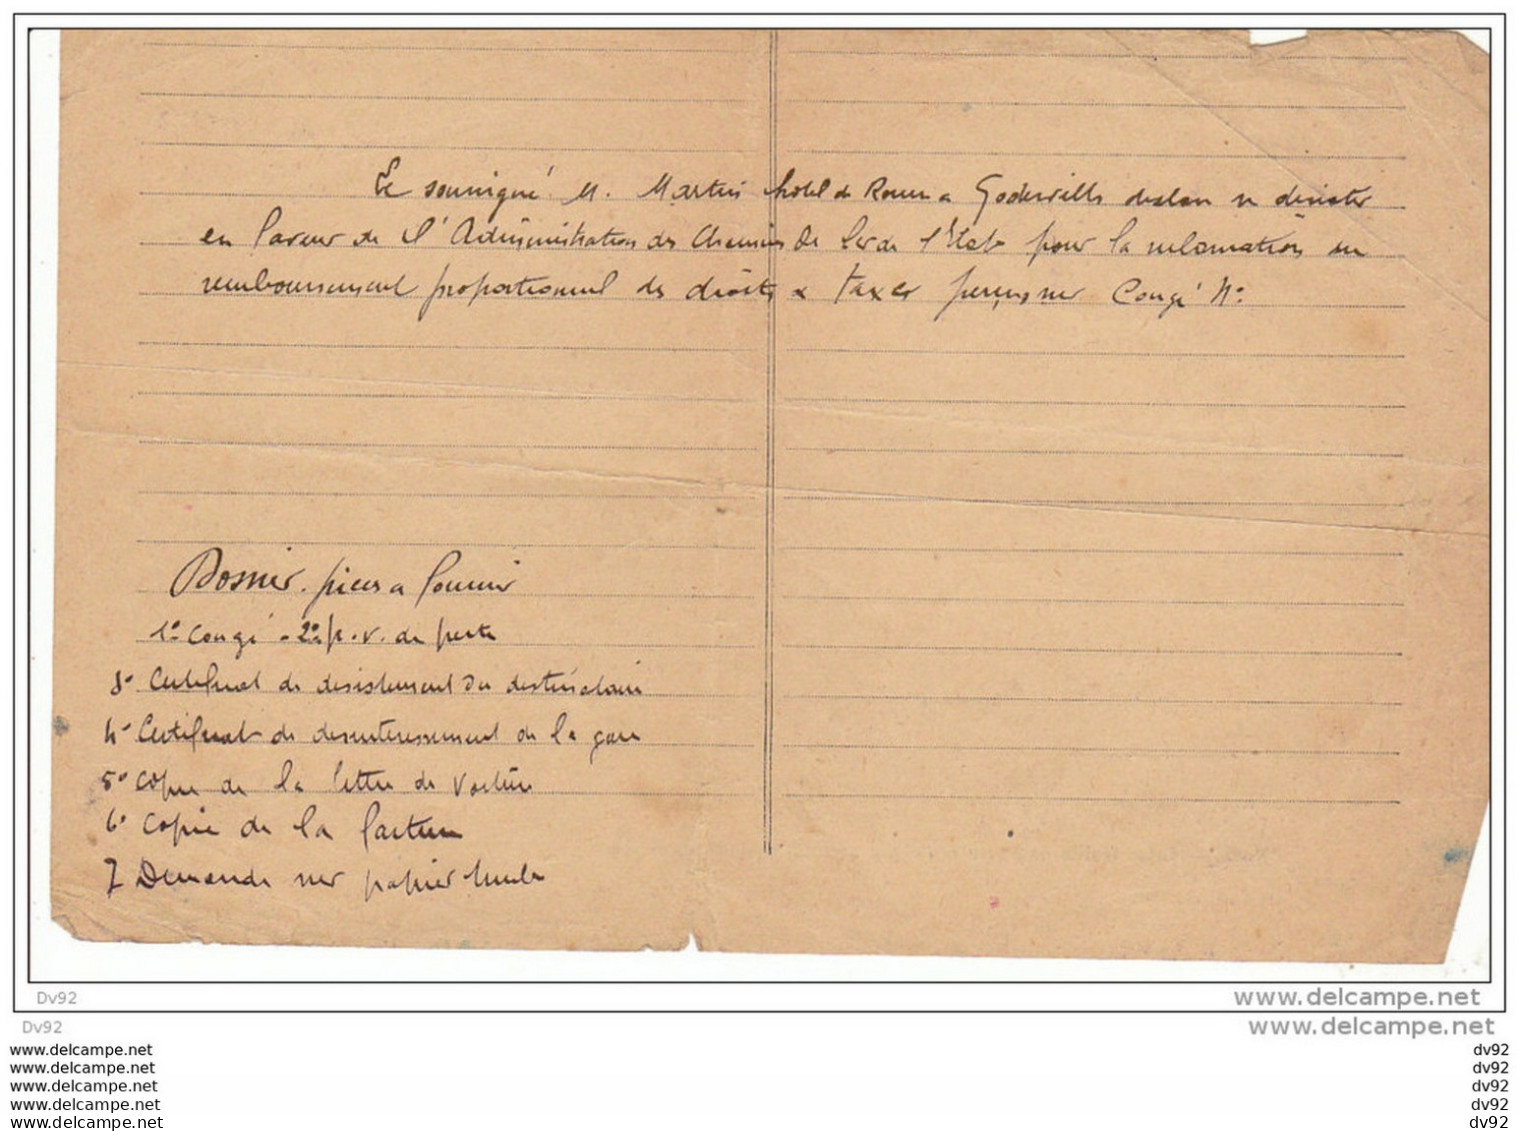 Le soussigné M. Martin hotel de Rouen a Goderville declare se désister
en faveur de l'Administration des Chemins de fer de l'Etat pour la réclamation en
remboursement proportionnel des droits & taxes perçus sur Congé N°
Dossier. pieces a fournir
1° Congé - 2° p.v. de perte
3° Certificat de desistement du destinataire
4° Certificat de desinteressement de la gare
5° Copie de la lettre de Voiture
6° Copie de la facture
7 Demande sur papier timbré
Dv92
www.delcampe.net
Dv92
www.delcampe.net
www.delcampe.net dv92
www.delcampe.net dv92
www.delcampe.net dv92
www.delcampe.net dv92
www.delcampe.net dv92